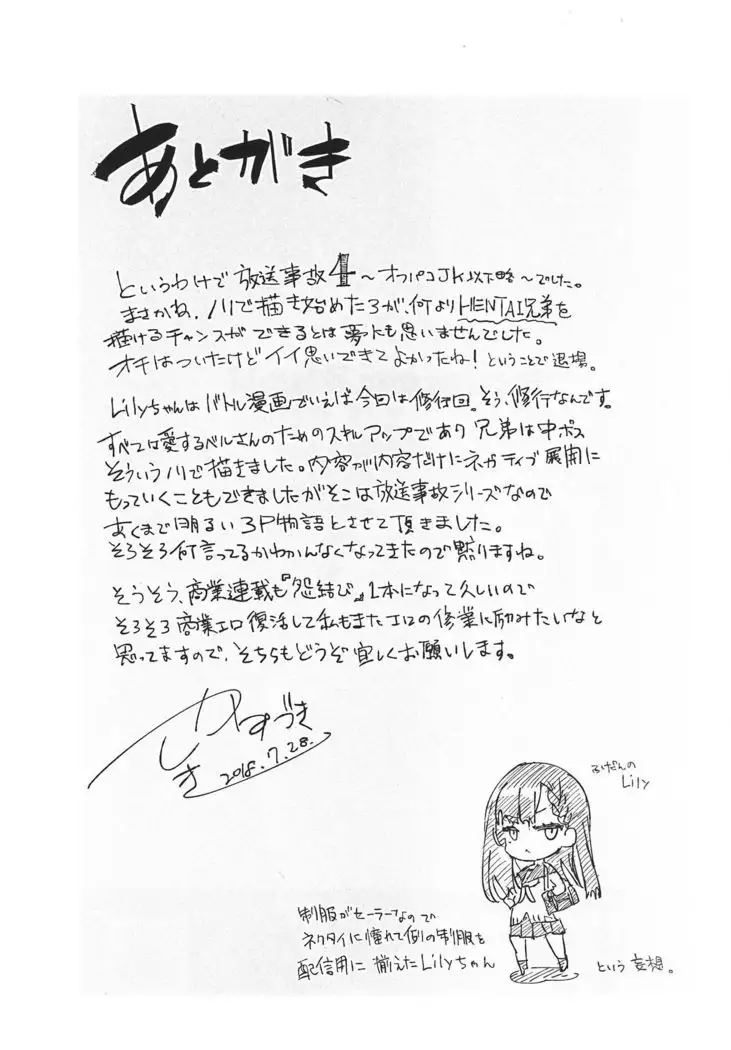 あとがき
というわけで放送事故4〜オフパコJK以下略〜でした。
まさかね、ノリで描き始めた3が、何よりHENTAI兄弟を
描けるチャンスができるとは夢にも思いませんでした。
オチはついたけどイイ思いできてよかったね!ということで退場。
Lilyちゃんはバトル漫画でいえば今回は修行回。そう、修行なんです。
すべては愛するベルさんのためのスキルアップであり兄弟は中ボス
そういうノリで描きました。内容が内容だけにネガティブ展開に
もっていくこともできましたがそこは放送事故シリーズなので
あくまで明るい3P物語とさせて頂きました。
そろそろ何言ってるかわかんなくなってきたので黙りますね。
そうそう、商業連載も『怨結び』1本になって久しいので
そろそろ商業エロ復活して私もまたエロの修業に励みたいなと
思ってますので、そちらもどうぞ宜しくお願いします。
かすづき
2018.7.28.
ふだんの
Lily
制服がセーラーなので
ネクタイに憧れて別の制服を
配信用に揃えたLilyちゃん
という妄想。